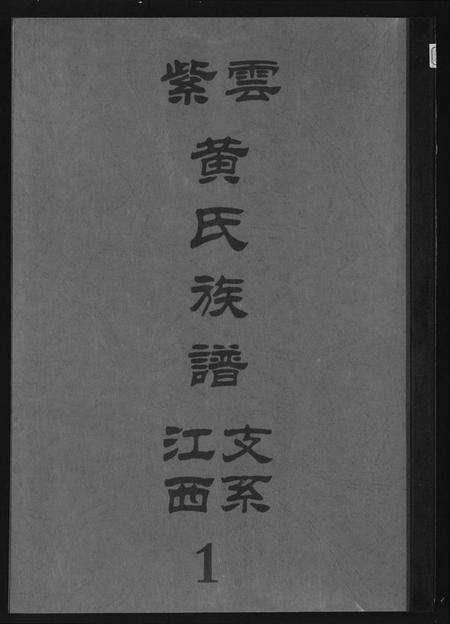 紫雲
黄氏族譜
江西
支系
1